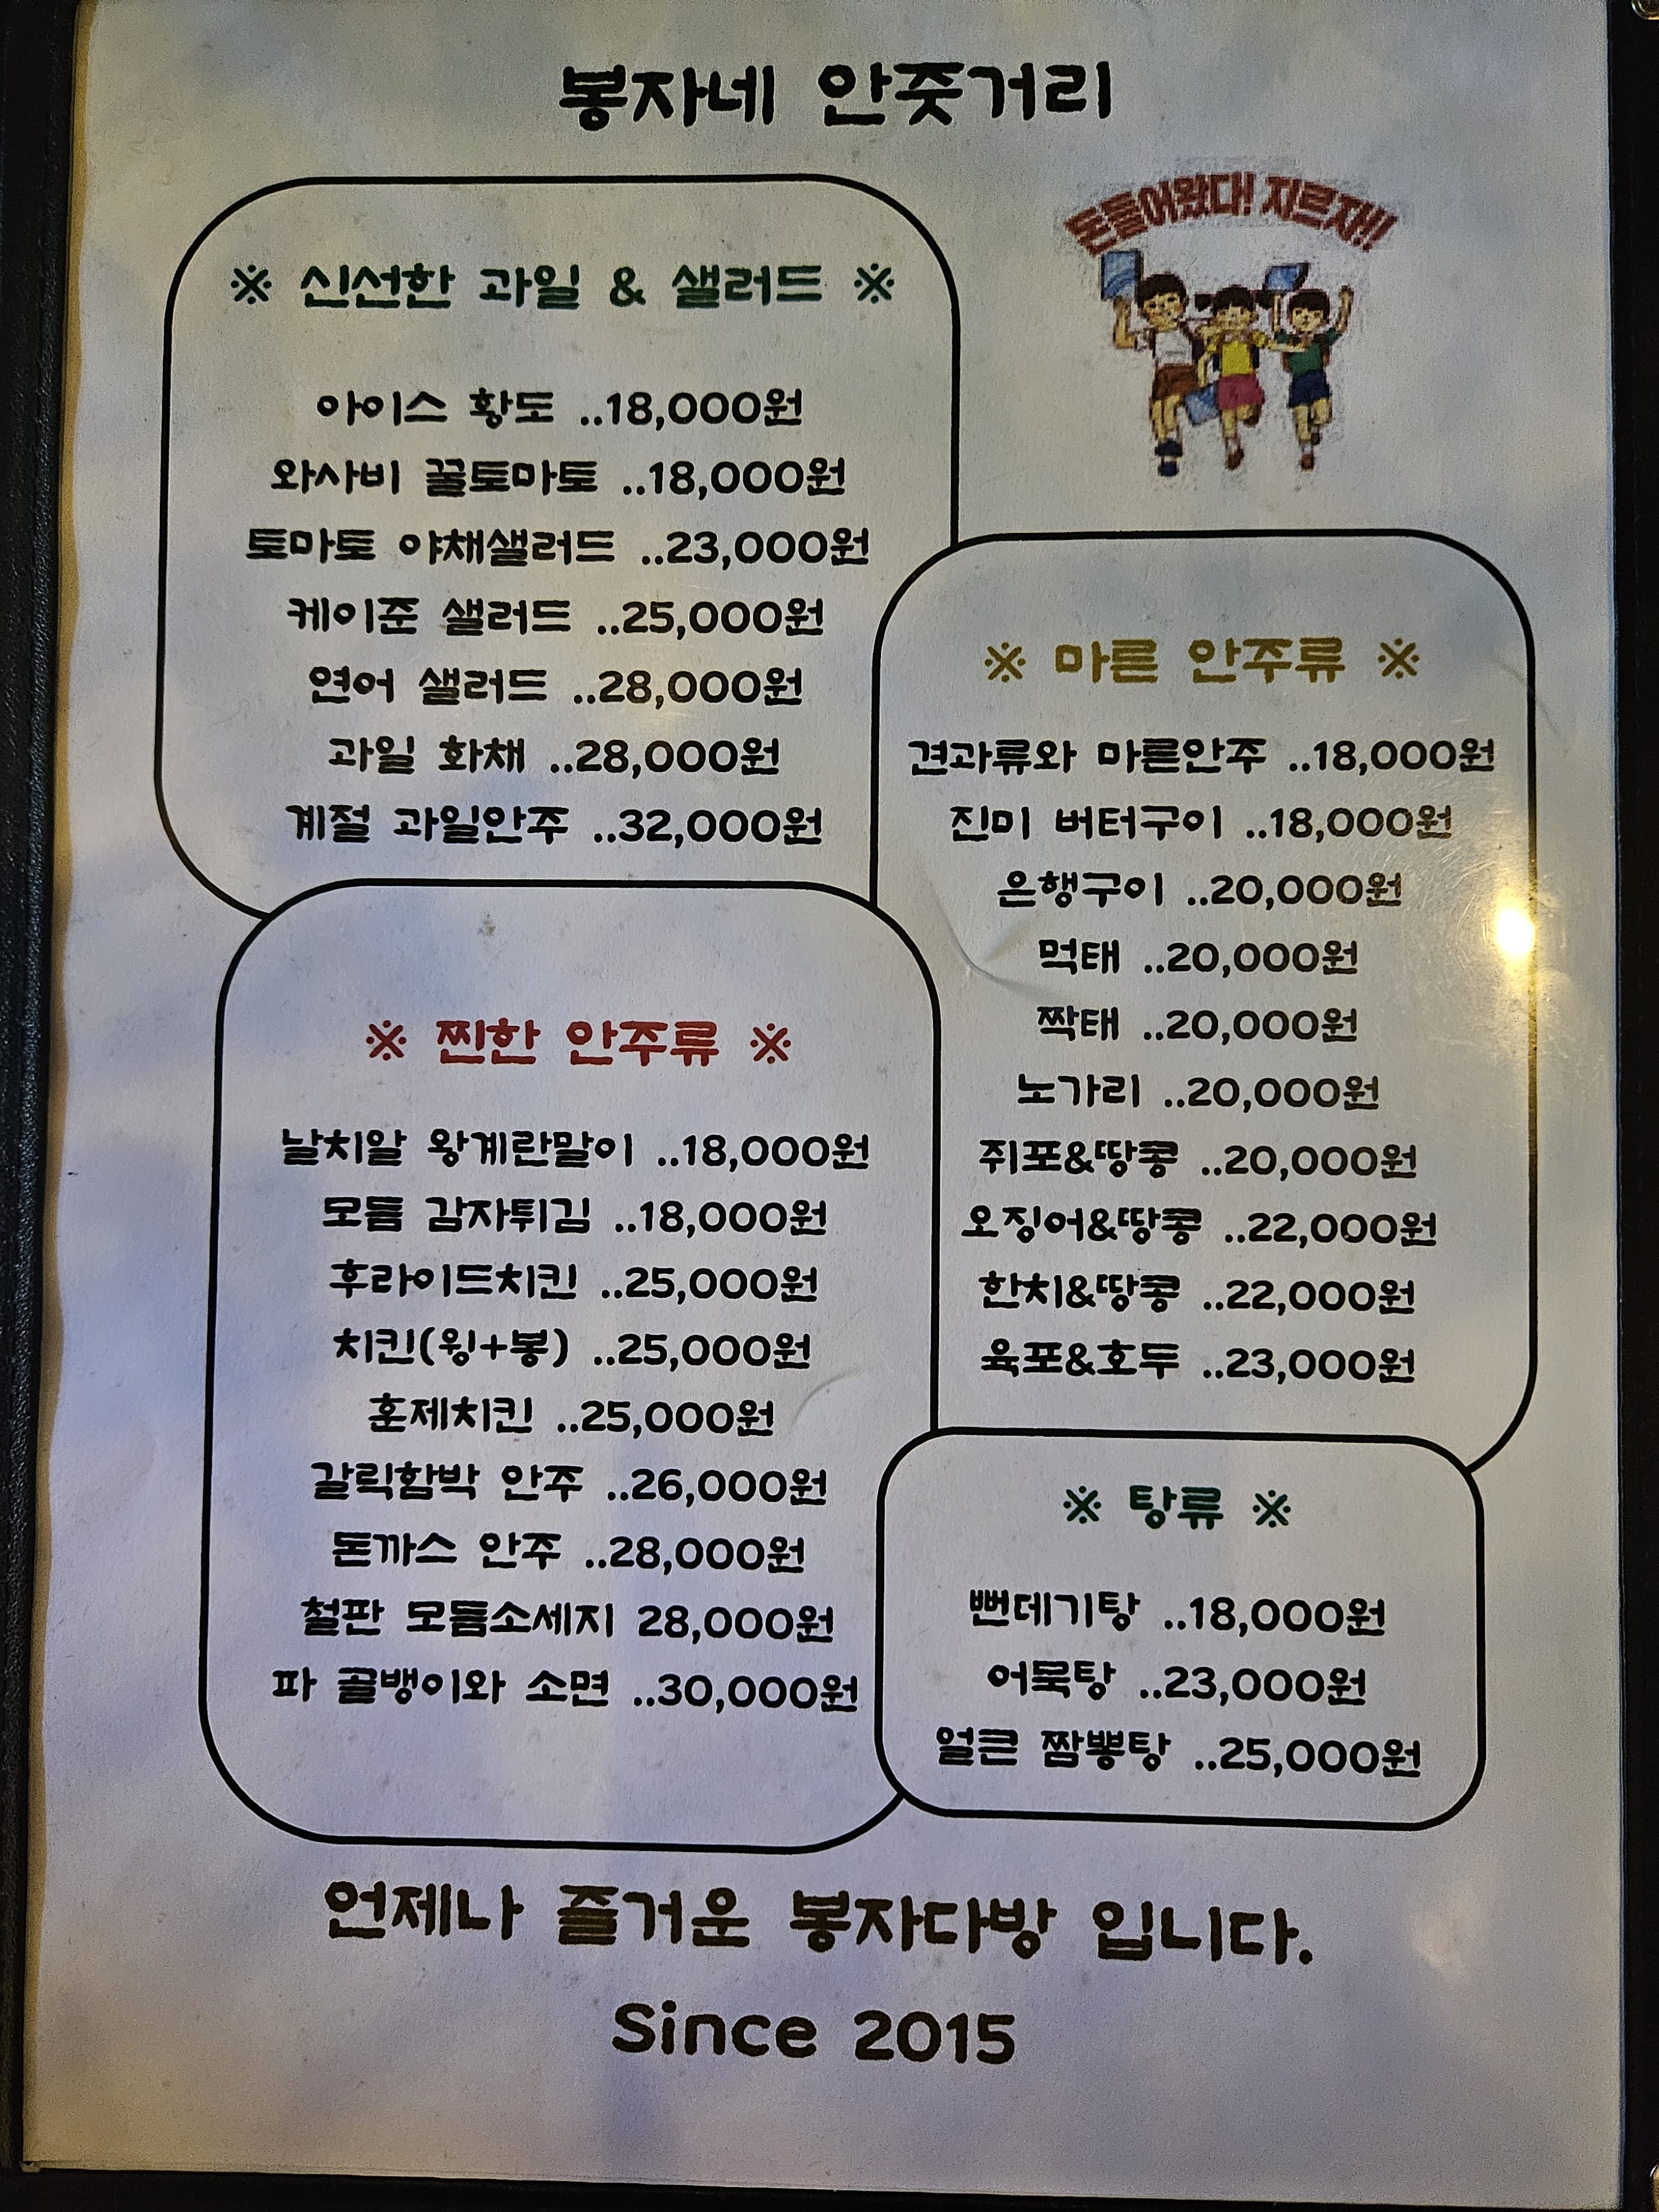 봉자네 안줏거리
돈들어왔다! 지르자!!
※ 신선한 과일 & 샐러드 ※
아이스 황도 ..18,000원
와사비 꿀토마토 ..18,000원
토마토 야채샐러드 ..23,000원
케이준 샐러드 ..25,000원
연어 샐러드 ..28,000원
과일 화채 ..28,000원
계절 과일안주 ..32,000원
※ 마른 안주류 ※
견과류와 마른안주 ..18,000원
진미 버터구이 ..18,000원
은행구이 ..20,000원
먹태 ..20,000원
짝태 ..20,000원
노가리 ..20,000원
쥐포&땅콩 ..20,000원
오징어&땅콩 ..22,000원
한치&땅콩 ..22,000원
육포&호두 ..23,000원
※ 찐한 안주류 ※
날치알 왕계란말이 ..18,000원
모듬 감자튀김 ..18,000원
후라이드치킨 ..25,000원
치킨(윙+봉) ..25,000원
훈제치킨 ..25,000원
갈릭함박 안주 ..26,000원
돈까스 안주 ..28,000원
철판 모듬소세지 28,000원
파 골뱅이와 소면 ..30,000원
※ 탕류 ※
뻔데기탕 ..18,000원
어묵탕 ..23,000원
얼큰 짬뽕탕 ..25,000원
언제나 즐거운 봉자다방 입니다.
Since 2015